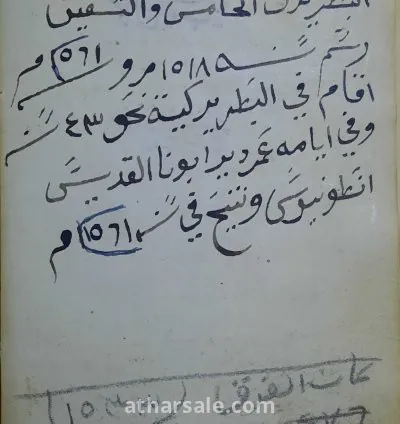 البطريرك الخامس والتسعين
رسم سنة ١٥١٨ م و ١٥٦١ م
اقام في البطريركية نحو ٤٣ سنة
وفي ايامه عمر دير ابونا القديس
انطونيوس وتنيح في سنة ١٥٦١ م
athersale.com